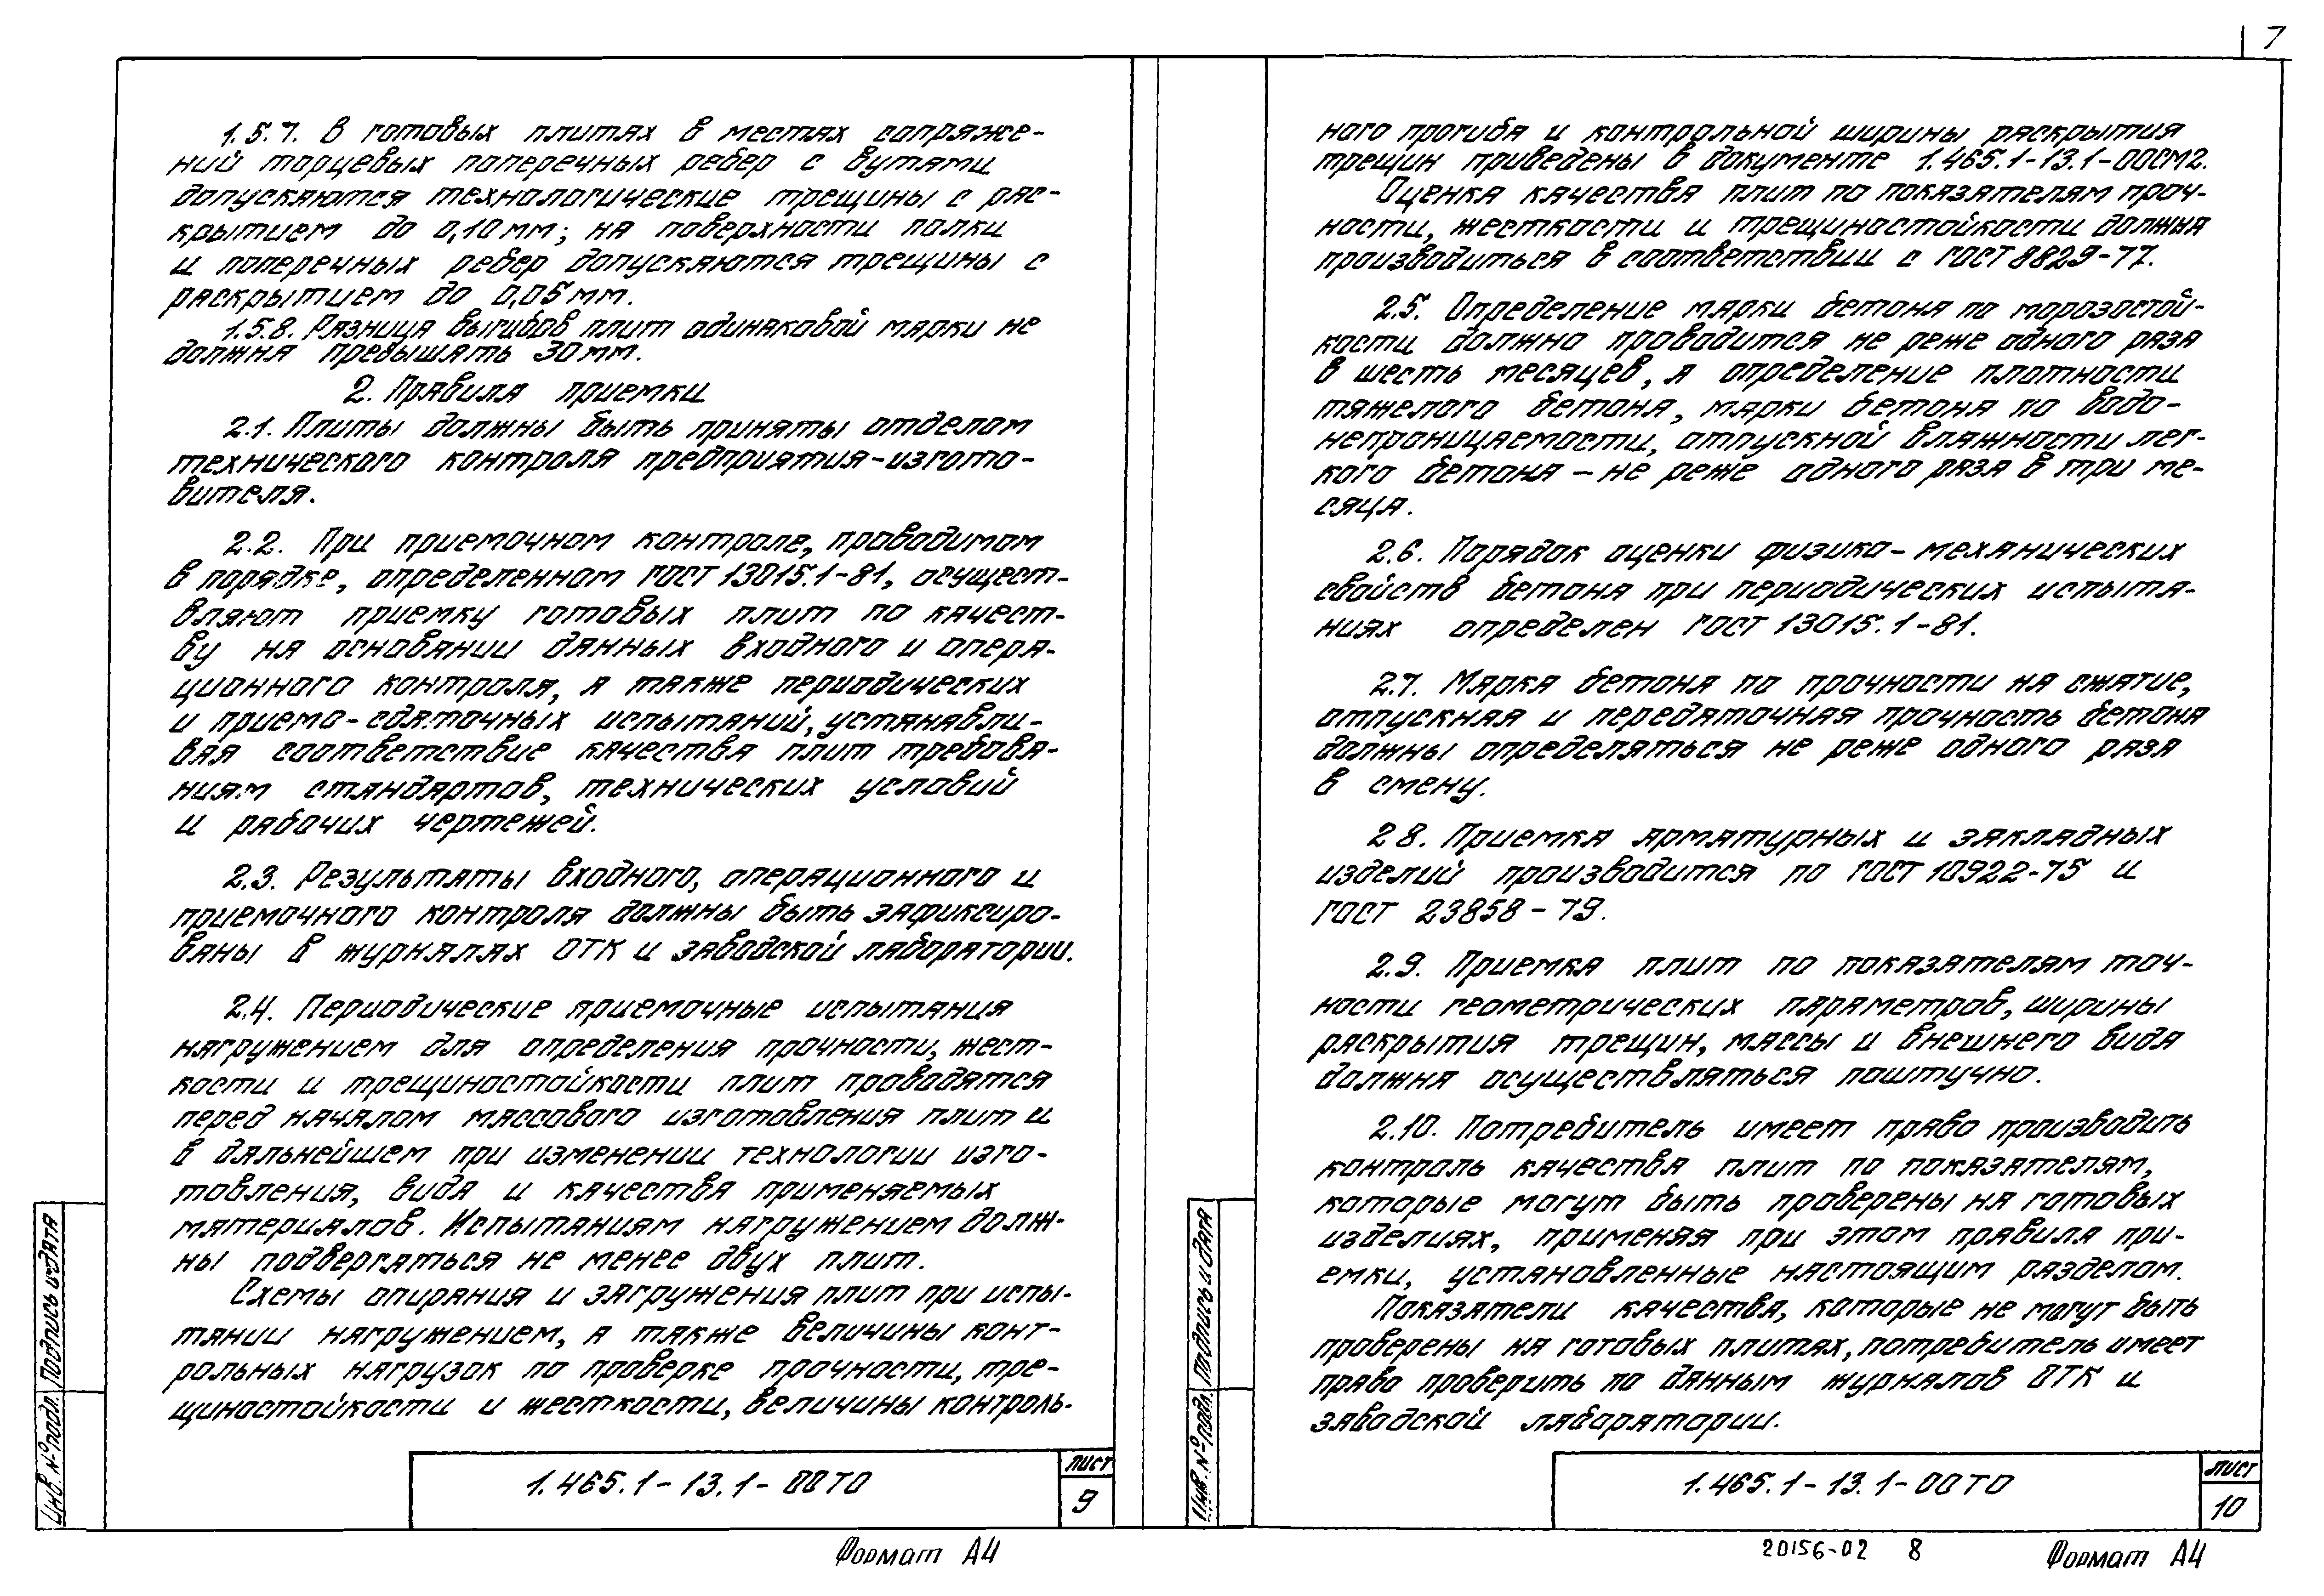 7
1.5.7. В готовых плитах в местах сопряже-
ний торцевых поперечных ребер с вутами
допускаются технологические трещины с рас-
крытием до 0,10 мм; на поверхности полки
и поперечных ребер допускаются трещины с
раскрытием до 0,05 мм.
1.5.8. Разница выгибов плит одинаковой марки не
должна превышать 30 мм.
2. Правила приемки
2.1. Плиты должны быть приняты отделом
технического контроля предприятия-изгото-
вителя.
2.2. При приемочном контроле, проводимом
в порядке, определенном ГОСТ 13015.1-81, осущест-
вляют приемку готовых плит по качест-
ву на основании данных входного и опера-
ционного контроля, а также периодических
и приемо-сдаточных испытаний, устанавли-
вая соответствие качества плит требова-
ниям стандартов, технических условий
и рабочих чертежей.
2.3. Результаты входного, операционного и
приемочного контроля должны быть зафиксиро-
ваны в журналах ОТК и заводской лаборатории.
2.4. Периодические приемочные испытания
нагружением для определения прочности, жест-
кости и трещиностойкости плит проводятся
перед началом массового изготовления плит и
в дальнейшем при изменении технологии изго-
товления, вида и качества применяемых
материалов. Испытаниям нагружением долж-
ны подвергаться не менее двух плит.
Схемы опирания и загружения плит при испы-
тании нагружением, а также величины конт-
рольных нагрузок по проверке прочности, тре-
щиностойкости и жесткости, величины контроль-
1.465.1-13.1-00ТО
лист
9
Инв. № подл. Подпись и дата
Формат А4
ного прогиба и контрольной ширины раскрытия
трещин приведены в документе 1.465.1-13.1-00СМ2.
Оценка качества плит по показателям проч-
ности, жесткости и трещиностойкости должна
производиться в соответствии с ГОСТ 8829-77.
2.5. Определение марки бетона по морозостой-
кости должно проводится не реже одного раза
в шесть месяцев, а определение плотности
тяжелого бетона, марки бетона по водо-
непроницаемости, отпускной влажности лег-
кого бетона - не реже одного раза в три ме-
сяца.
2.6. Порядок оценки физико-механических
свойств бетона при периодических испыта-
ниях определен ГОСТ 13015.1-81.
2.7. Марка бетона по прочности на сжатие,
отпускная и передаточная прочность бетона
должны определяться не реже одного раза
в смену.
2 8. Приемка арматурных и закладных
изделий производится по ГОСТ 10922-75 и
ГОСТ 23858-79.
2.9. Приемка плит по показателям точ-
ности геометрических параметров, ширины
раскрытия трещин, массы и внешнего вида
должна осуществляться поштучно.
2.10. Потребитель имеет право производить
контроль качества плит по показателям,
которые могут быть проверены на готовых
изделиях, применяя при этом правила при-
емки, установленные настоящим разделом.
Показатели качества, которые не могут быть
проверены на готовых плитах, потребитель имеет
право проверить по данным журналов ОТК и
заводской лаборатории.
1.465.1-13.1-00ТО
лист
10
Инв. № подл. Подпись и дата
20156-02 8
Формат А4